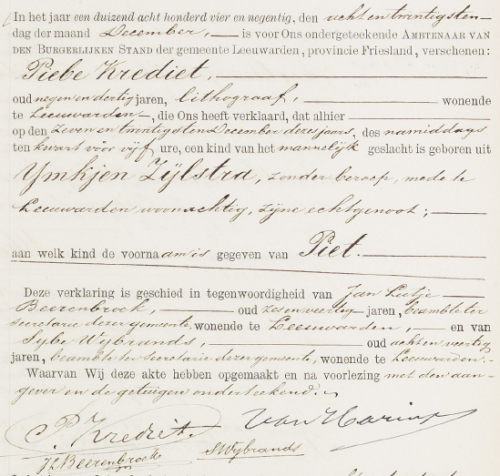 In het jaar een duizend acht honderd vier en negentig, den acht en twintigsten
dag der maand December, is voor Ons ondergeteekende AMBTENAAR VAN
DEN BURGERLIJKEN STAND der gemeente Leeuwarden, provincie Friesland, verschenen:
Piebe Krediet,
oud negen en dertig jaren, lithograaf, wonende
te Leeuwarden, die Ons heeft verklaard, dat alhier
op den zeven en twintigsten December dezes jaars, des namiddags
ten kwart vóór vijf ure, een kind van het mannelijk geslacht is geboren uit
Ymkjen Zijlstra, zonder beroep, mede te
Leeuwarden woonachtig, zijne echtgenoot;
aan welk kind de voornaam is gegeven van Piet.
Deze verklaring is geschied in tegenwoordigheid van Jan
Beerenbroek, oud zes en veertig jaren, beambte ter
secretarie dezer gemeente, wonende te Leeuwarden, en van
Sybe Wybrands, oud acht en veertig
jaren, beambte ter secretarie dezer gemeente, wonende te Leeuwarden.
Waarvan Wij deze akte hebben opgemaakt en na voorlezing met den aan-
gever en de getuigen onderteekend.
P. Krediet. van Harinx
Beerenbroek Wybrands